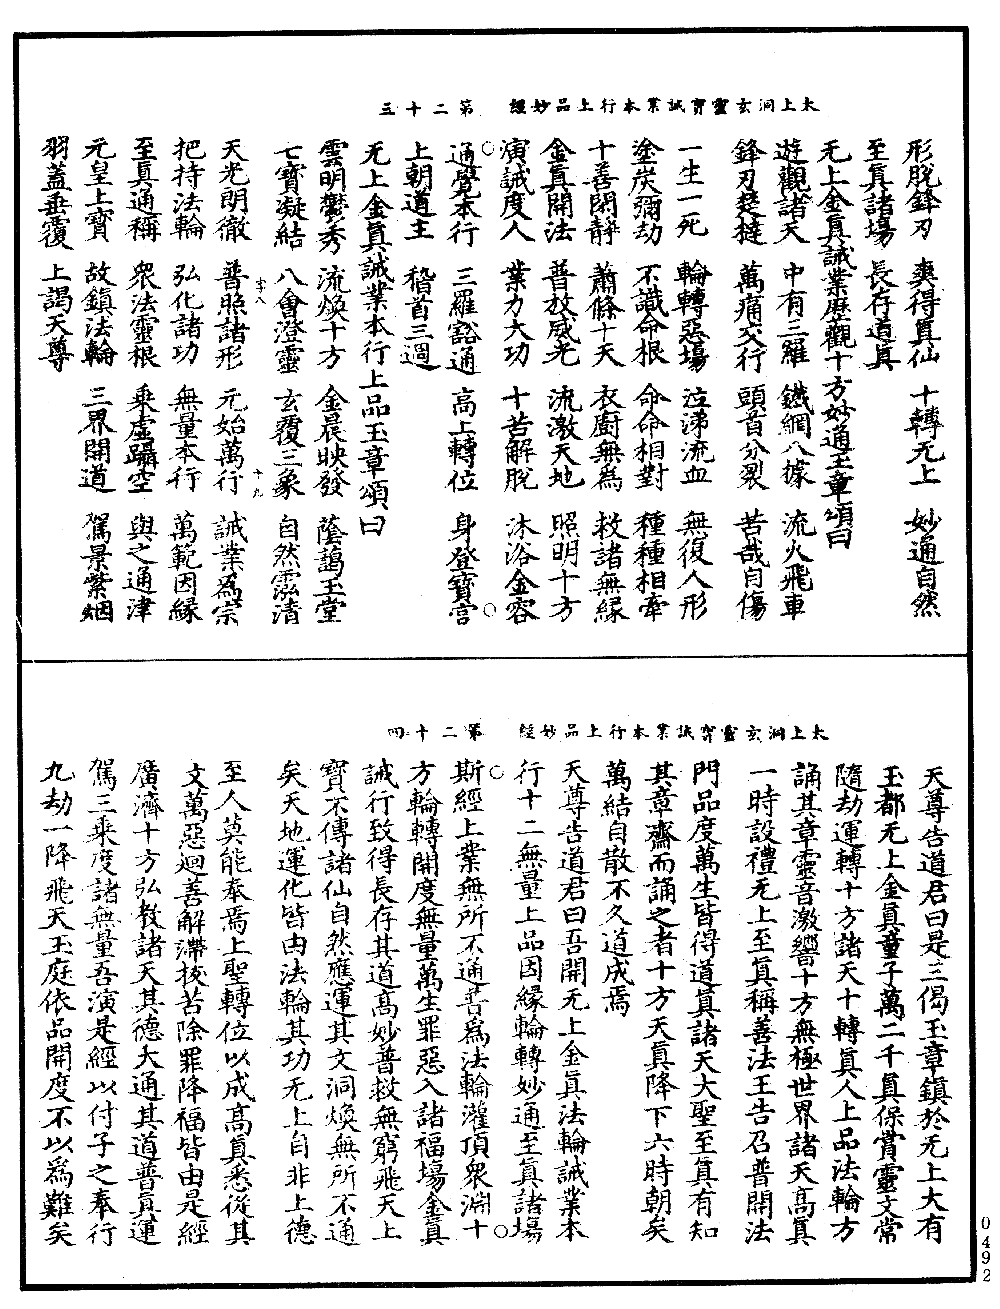 太上洞玄靈寳誡業本行上品妙經　第二十三
形脱鋒刃　爽得真仙　十轉九上　妙通自然
至真諸場　長存道真
无上金真誡業歷觀十方妙通玉章頌曰
遊觀諸天　中有三羅　鐵網八據　流火飛車
鋒刃楚撻　萬痛交行　頭首分裂　苦哉自傷
一生一死　輪轉惡塲　泣涕流血　無復人形
塗炭彌劫　不識命根　命命相對　種種相牽
十善閑靜　蕭條十天　衣廚無爲　救諸無緣
金真開法　普放威光　流激天地　照明十方
演誡度人　業力大功　十苦解脱　沐浴金容
通覺本行　三羅豁通　高上轉位　身登寳宫
上朝道主　稽首三週
无上金真誡業本行上品玉章頌曰
雲明欝秀　流煥十方　金晨映發　蔭藹玉堂
七寳凝結　八會澄靈　玄覆三象　自然澐清
字八　十九
天光朗徹　普照諸形　元始萬行　誡業爲宗
把持法輪　弘化諸功　無量本行　萬範因緣
至真通稱　衆法靈根　乘虛躡空　與之通津
元皇上寳　故鎮法輪　三界開道　駕景紫烟
羽蓋垂覆　上謁天尊
太上洞玄靈寳誡業本行上品妙經　第二十四
天尊告道君曰是三偈玉章鎮於无上大有
玉都无上金真童子萬二千真保賞靈文常
隨劫運轉十方諸天十轉真人上品法輪方
誦其章靈音激響十方無極世界諸天高真
一時設禮无上至真稱善法王告召普開法
門品度萬生皆得道真諸天大聖至真有知
其章齋而誦之者十方天真降下六時朝矣
萬結自散不久道成焉
天尊告道君曰吾開无上金真法輪誡業本
行十二無量上品因緣輪轉妙通至真諸塲
斯經上業無所不通善爲法輪灌頂衆淵十
方輪轉開度無量萬生罪惡入諸福塲金真
誡行致得長存其道高妙普救無窮飛天上
寳不傳諸仙自然應運其文洞煥無所不通
矣天地運化皆由法輪其功无上自非上德
至人莫能奉焉上聖轉位以成高真悉從其
文萬惡迴善解滯拔苦除罪降福皆由是經
廣濟十方弘教諸天其德大通其道普真運
駕三乘度諸無量吾演是經以付子之奉行
九劫一降飛天玉庭依品開度不以爲難矣
0492